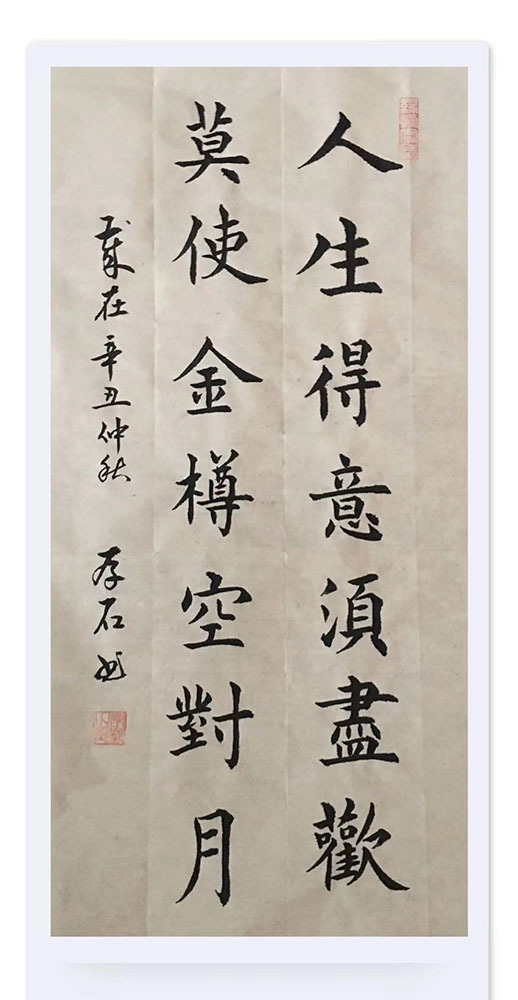 人生得意須盡歡
莫使金樽空對月
歲在辛丑仲秋 存石书